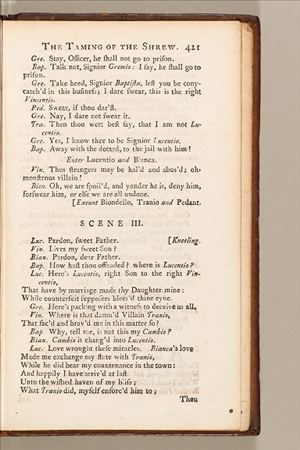 The Taming of the Shrew. 421
Gre. Stay, Officer, he ſhall not go to priſon.
Bap. Talk not, Signior Gremio: I ſay, he ſhall go to
priſon.
Gre. Take heed, Signior Baptiſta, leſt you be cony-
catch'd in this buſineſs; I dare ſwear, this is the right
Vincentio.
Ped. Swear, if thou dar'ſt.
Gre. Nay, I dare not ſwear it.
Tra. Then thou wert beſt ſay, that I am not Lu-
centio.
Gre. Yes, I know thee to be Signior Lucentio.
Bap. Away with the dotard, to the jail with him!
Enter Lucentio and Bianca.
Vin. Thus ſtrangers may be hal'd and abus'd; oh,
monſtrous villain!
Bion. Oh, we are ſpoil'd, and yonder he is, deny him,
forſwear him, or elſe we are all undone.
[Exeunt Biondello, Tranio and Pedant.
SCENE III.
Luc. Pardon, ſweet Father. [Kneeling.
Vin. Lives my ſweet Son?
Bian. Pardon, dear Father.
Bap. How haſt thou offended? where is Lucentio?
Luc. Here's Lucentio, right Son to the right Vin-
centio,
That have by marriage made thy Daughter mine:
While counterfeit ſuppoſers bleer'd thine eyne.
Gre. Here's packing with a witneſs to deceive us all.
Vin. Where is that damn'd Villain Tranio,
That fac'd and brav'd me in this matter ſo?
Bap. Why, tell me, is not this my Cambio?
Bian. Cambio is chang'd into Lucentio.
Luc. Love wrought theſe miracles. Bianca's love
Made me exchange my ſtate with Tranio,
While he did bear my countenance in the town:
And happily I have arriv'd at laſt
Unto the wiſhed haven of my bliſs;
What Tranio did, myſelf enforc'd him to;
Then